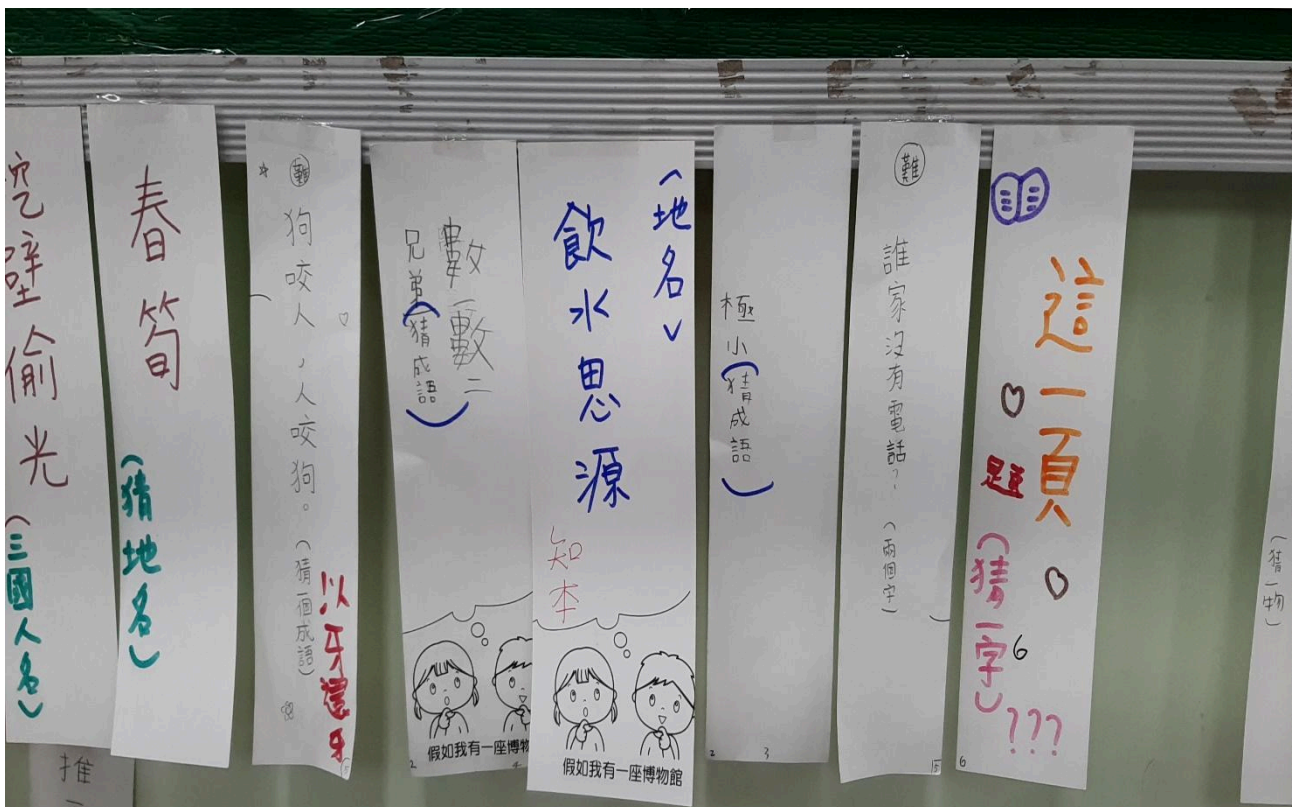 壁偷光
(三國人名)
推
春筍
(猜地名)
難
狗咬人，人咬狗。(猜一個成語)
以牙還牙
數一數二
兄弟(猜成語)
假如我有一座博物
(地名)
飲水思源
知本
假如我有一座博物館
極小(猜成語)
難
誰家沒有電話？(兩個字)
這一頁
題
(猜一字)
6
???
(猜一物)